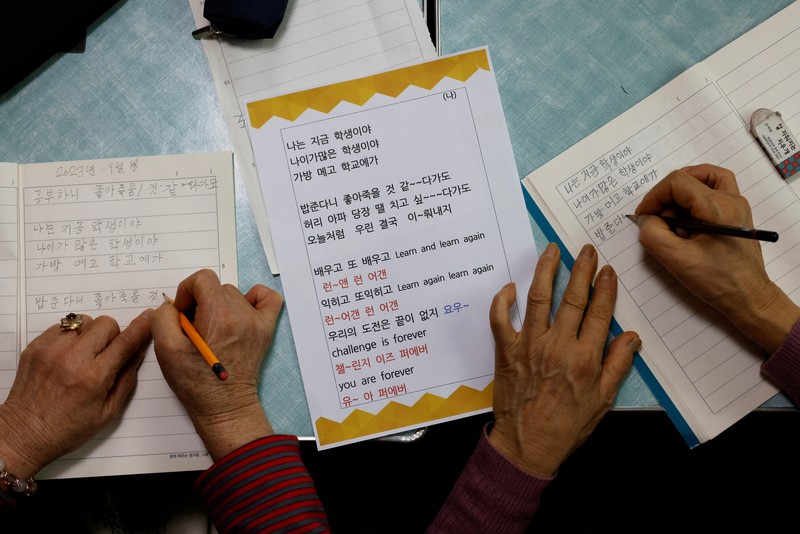 (나)
나는 지금 학생이야
나이가많은 학생이야
가방 메고 학교에가
밥준다니 좋아죽을 것 같~~다가도
허리 아파 당장 땔 치고 싶~~다가도
오늘처럼 우린 결국 이~뤄내지
배우고 또 배우고 Learn and learn again
런~앤 런 어갠
익히고 또익히고 Learn again learn again
런~어갠 런 어갠
우리의 도전은 끝이 없지 요우~
challenge is forever
챌~린지 이즈 퍼에버
you are forever
유~ 아 퍼에버
2023년
공부하니
나는 지금 학생이야
나이가 많은 학생이야
가방 메고 학교에가
밥준다니 좋아죽을 것
나는 지금 학생이야
나이가많은 학생이야
가방 메고 학교에가
밥준다